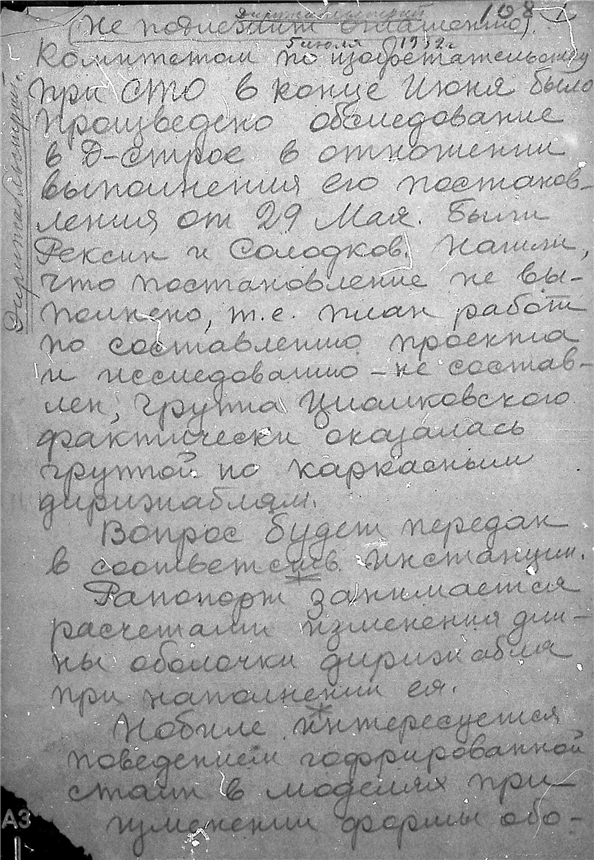 Дирижаблестрой 108
(Не подлежит оглашению).
5 июля 1932 г.
Комитетом по изобретательству
при СТО в конце Июня было
произведено обследование
в Д-строе в отношении
выполнения его постанов-
ления от 29 Мая. Были
Рексин и Солодков. Нашли,
что постановление не вы-
полнено, т.е. план работ
по составлению проекта
и исследованию – не состав-
лен, группа Циолковского
фактически оказалась
группой по каркасным
дирижаблям.
Вопрос будет передан
в соответств. инстанции.
Рапопорт занимается
расчетами изменения дли-
ны оболочки дирижабля
при наполнении ея.
Нобиле интересуется
поведением гофрированной
стали в моделях при
изменении формы обо-
Дирижаблестрой.
А3